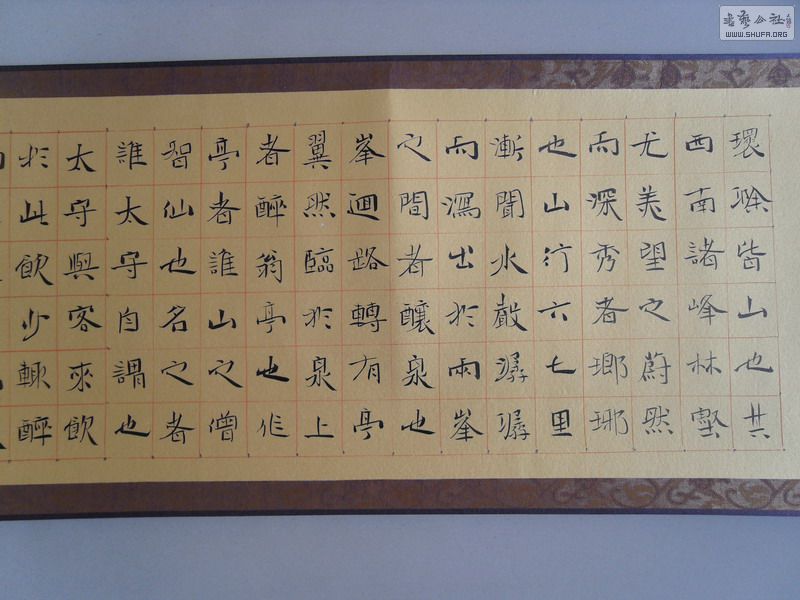 環滁皆山也其
西南諸峰林壑
尤美望之蔚然
而深秀者瑯琊
也山行六七里
漸聞水聲潺潺
而瀉出於兩峯
之間者釀泉也
峯迴路轉有亭
翼然臨於泉上
者醉翁亭也作
亭者誰山之僧
智仙也名之者
誰太守自謂也
太守與客來飲
於此飲少輒醉
書藝公社
WWW.SHUFA.ORG